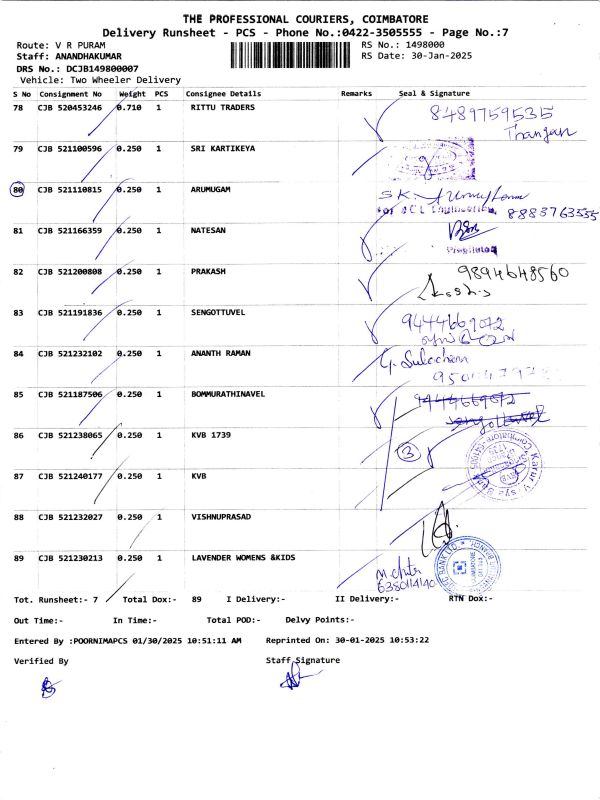 THE PROFESSIONAL COURIERS, COIMBATORE
Delivery Runsheet - PCS - Phone No.:0422-3505555 - Page No.:7
Route: V R PURAM RS No.: 1498000
Staff: ANANDHAKUMAR RS Date: 30-Jan-2025
DRS No.: DCJB149800007
Vehicle: Two Wheeler Delivery
S No Consignment No Weight PCS Consignee Details Remarks Seal & Signature
78 CJB 520453246 0.710 1 RITTU TRADERS 8489759535
Thangam
79 CJB 521100596 0.250 1 SRI KARTIKEYA
80 CJB 521110815 0.250 1 ARUMUGAM S.K.
8883763555
81 CJB 521166359 0.250 1 NATESAN
82 CJB 521200808 0.250 1 PRAKASH 9894648560
83 CJB 521191836 0.250 1 SENGOTTUVEL 9444669072
84 CJB 521232102 0.250 1 ANANTH RAMAN G. Sulochana
85 CJB 521187506 0.250 1 BOMMURATHINAVEL 9444669072
86 CJB 521238065 0.250 1 KVB 1739 3
87 CJB 521240177 0.250 1 KVB
88 CJB 521232027 0.250 1 VISHNUPRASAD
89 CJB 521230213 0.250 1 LAVENDER WOMENS &KIDS
6380114140
Tot. Runsheet:- 7 Total Dox:- 89 I Delivery:- II Delivery:- RTN Dox:-
Out Time:- In Time:- Total POD:- Delvy Points:-
Entered By :POORNIMAPCS 01/30/2025 10:51:11 AM Reprinted On: 30-01-2025 10:53:22
Verified By Staff Signature